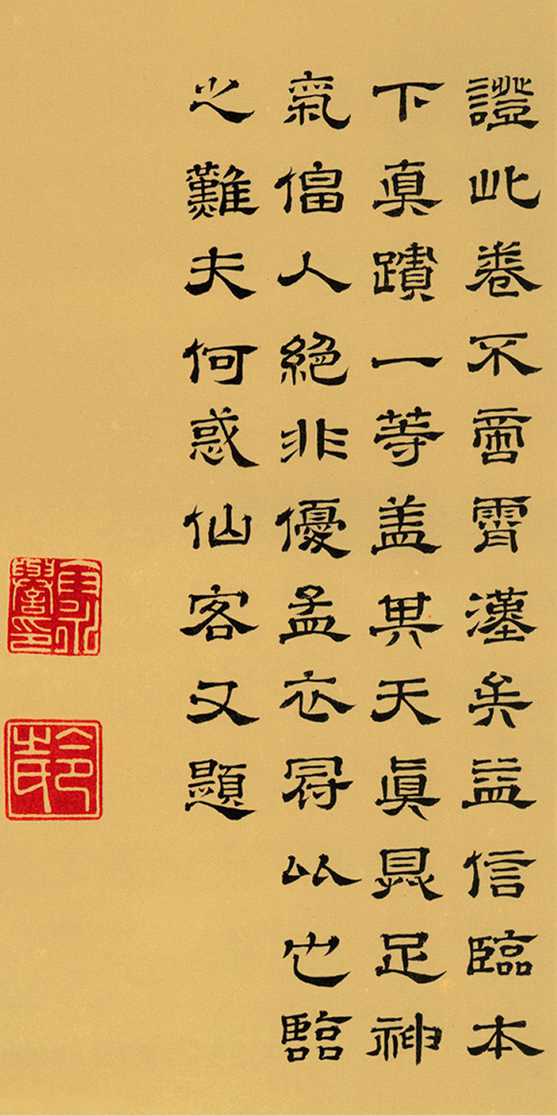 證此卷不啻霄漢矣益信臨本
下真蹟一等盖其天眞具足神
氣偪人絕非優孟衣冠比也臨
之難夫何惑仙客又題